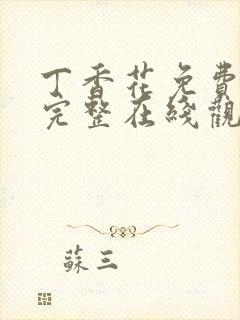 丁香花免費
完整在綫觀
蘇三